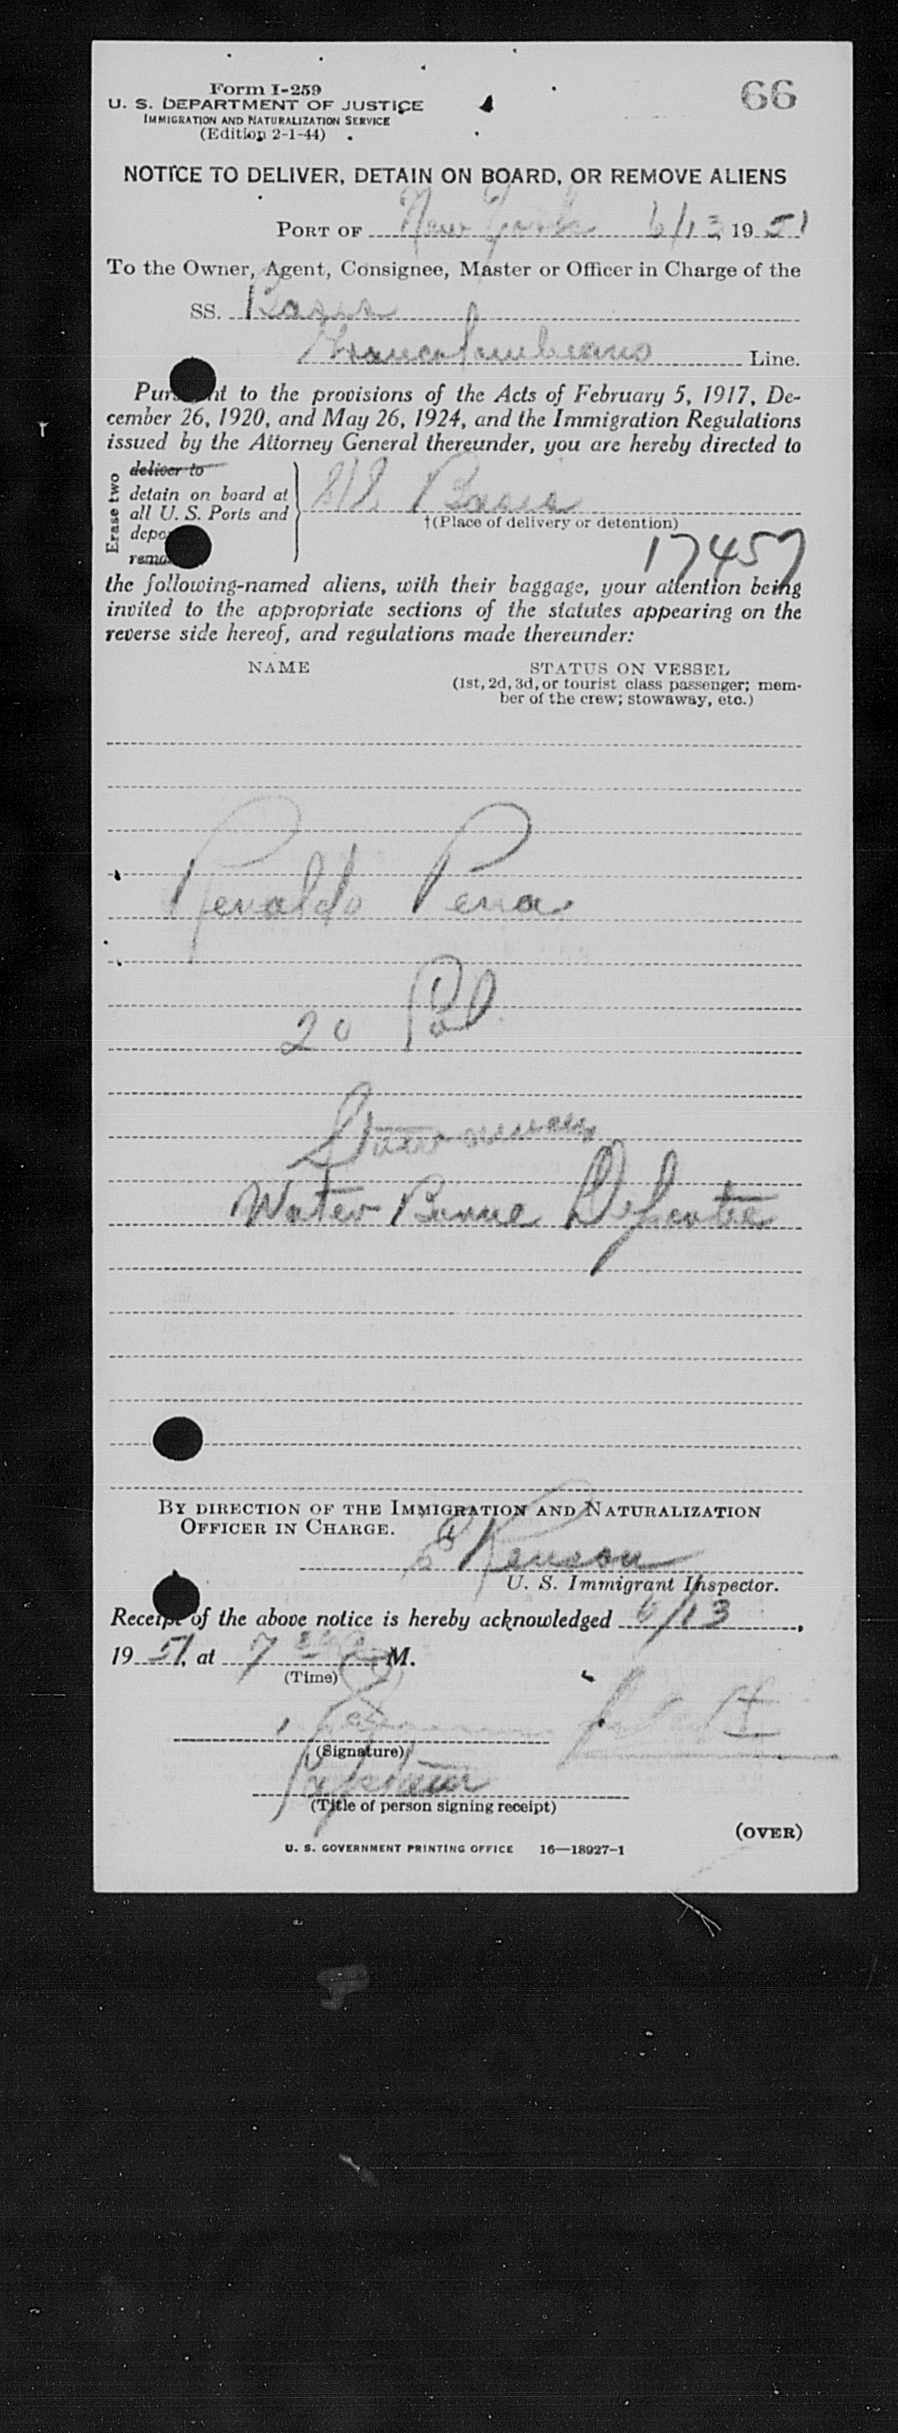 Form I-259
66
U. S. DEPARTMENT OF JUSTICE
IMMIGRATION AND NATURALIZATION SERVICE
(Edition 2-1-44)
NOTICE TO DELIVER, DETAIN ON BOARD, OR REMOVE ALIENS
PORT OF New York 6/13 1951
To the Owner, Agent, Consignee, Master or Officer in Charge of the
SS.
Line.
Pursuant to the provisions of the Acts of February 5, 1917, De-
cember 26, 1920, and May 26, 1924, and the Immigration Regulations
issued by the Attorney General thereunder, you are hereby directed to
Erase two
deliver to
detain on board at
all U. S. Ports and
†(Place of delivery or detention)
17457
the following-named aliens, with their baggage, your attention being
invited to the appropriate sections of the statutes appearing on the
reverse side hereof, and regulations made thereunder:
NAME STATUS ON VESSEL
(1st, 2d, 3d, or tourist class passenger; mem-
ber of the crew; stowaway, etc.)
Renaldo Pena
20
Water
BY DIRECTION OF THE IMMIGRATION AND NATURALIZATION
OFFICER IN CHARGE.
U. S. Immigrant Inspector.
Receipt of the above notice is hereby acknowledged 6/13,
1951, at 7 M.
(Time)
(Signature)
(Title of person signing receipt)
(OVER)
U. S. GOVERNMENT PRINTING OFFICE 16—18927-1